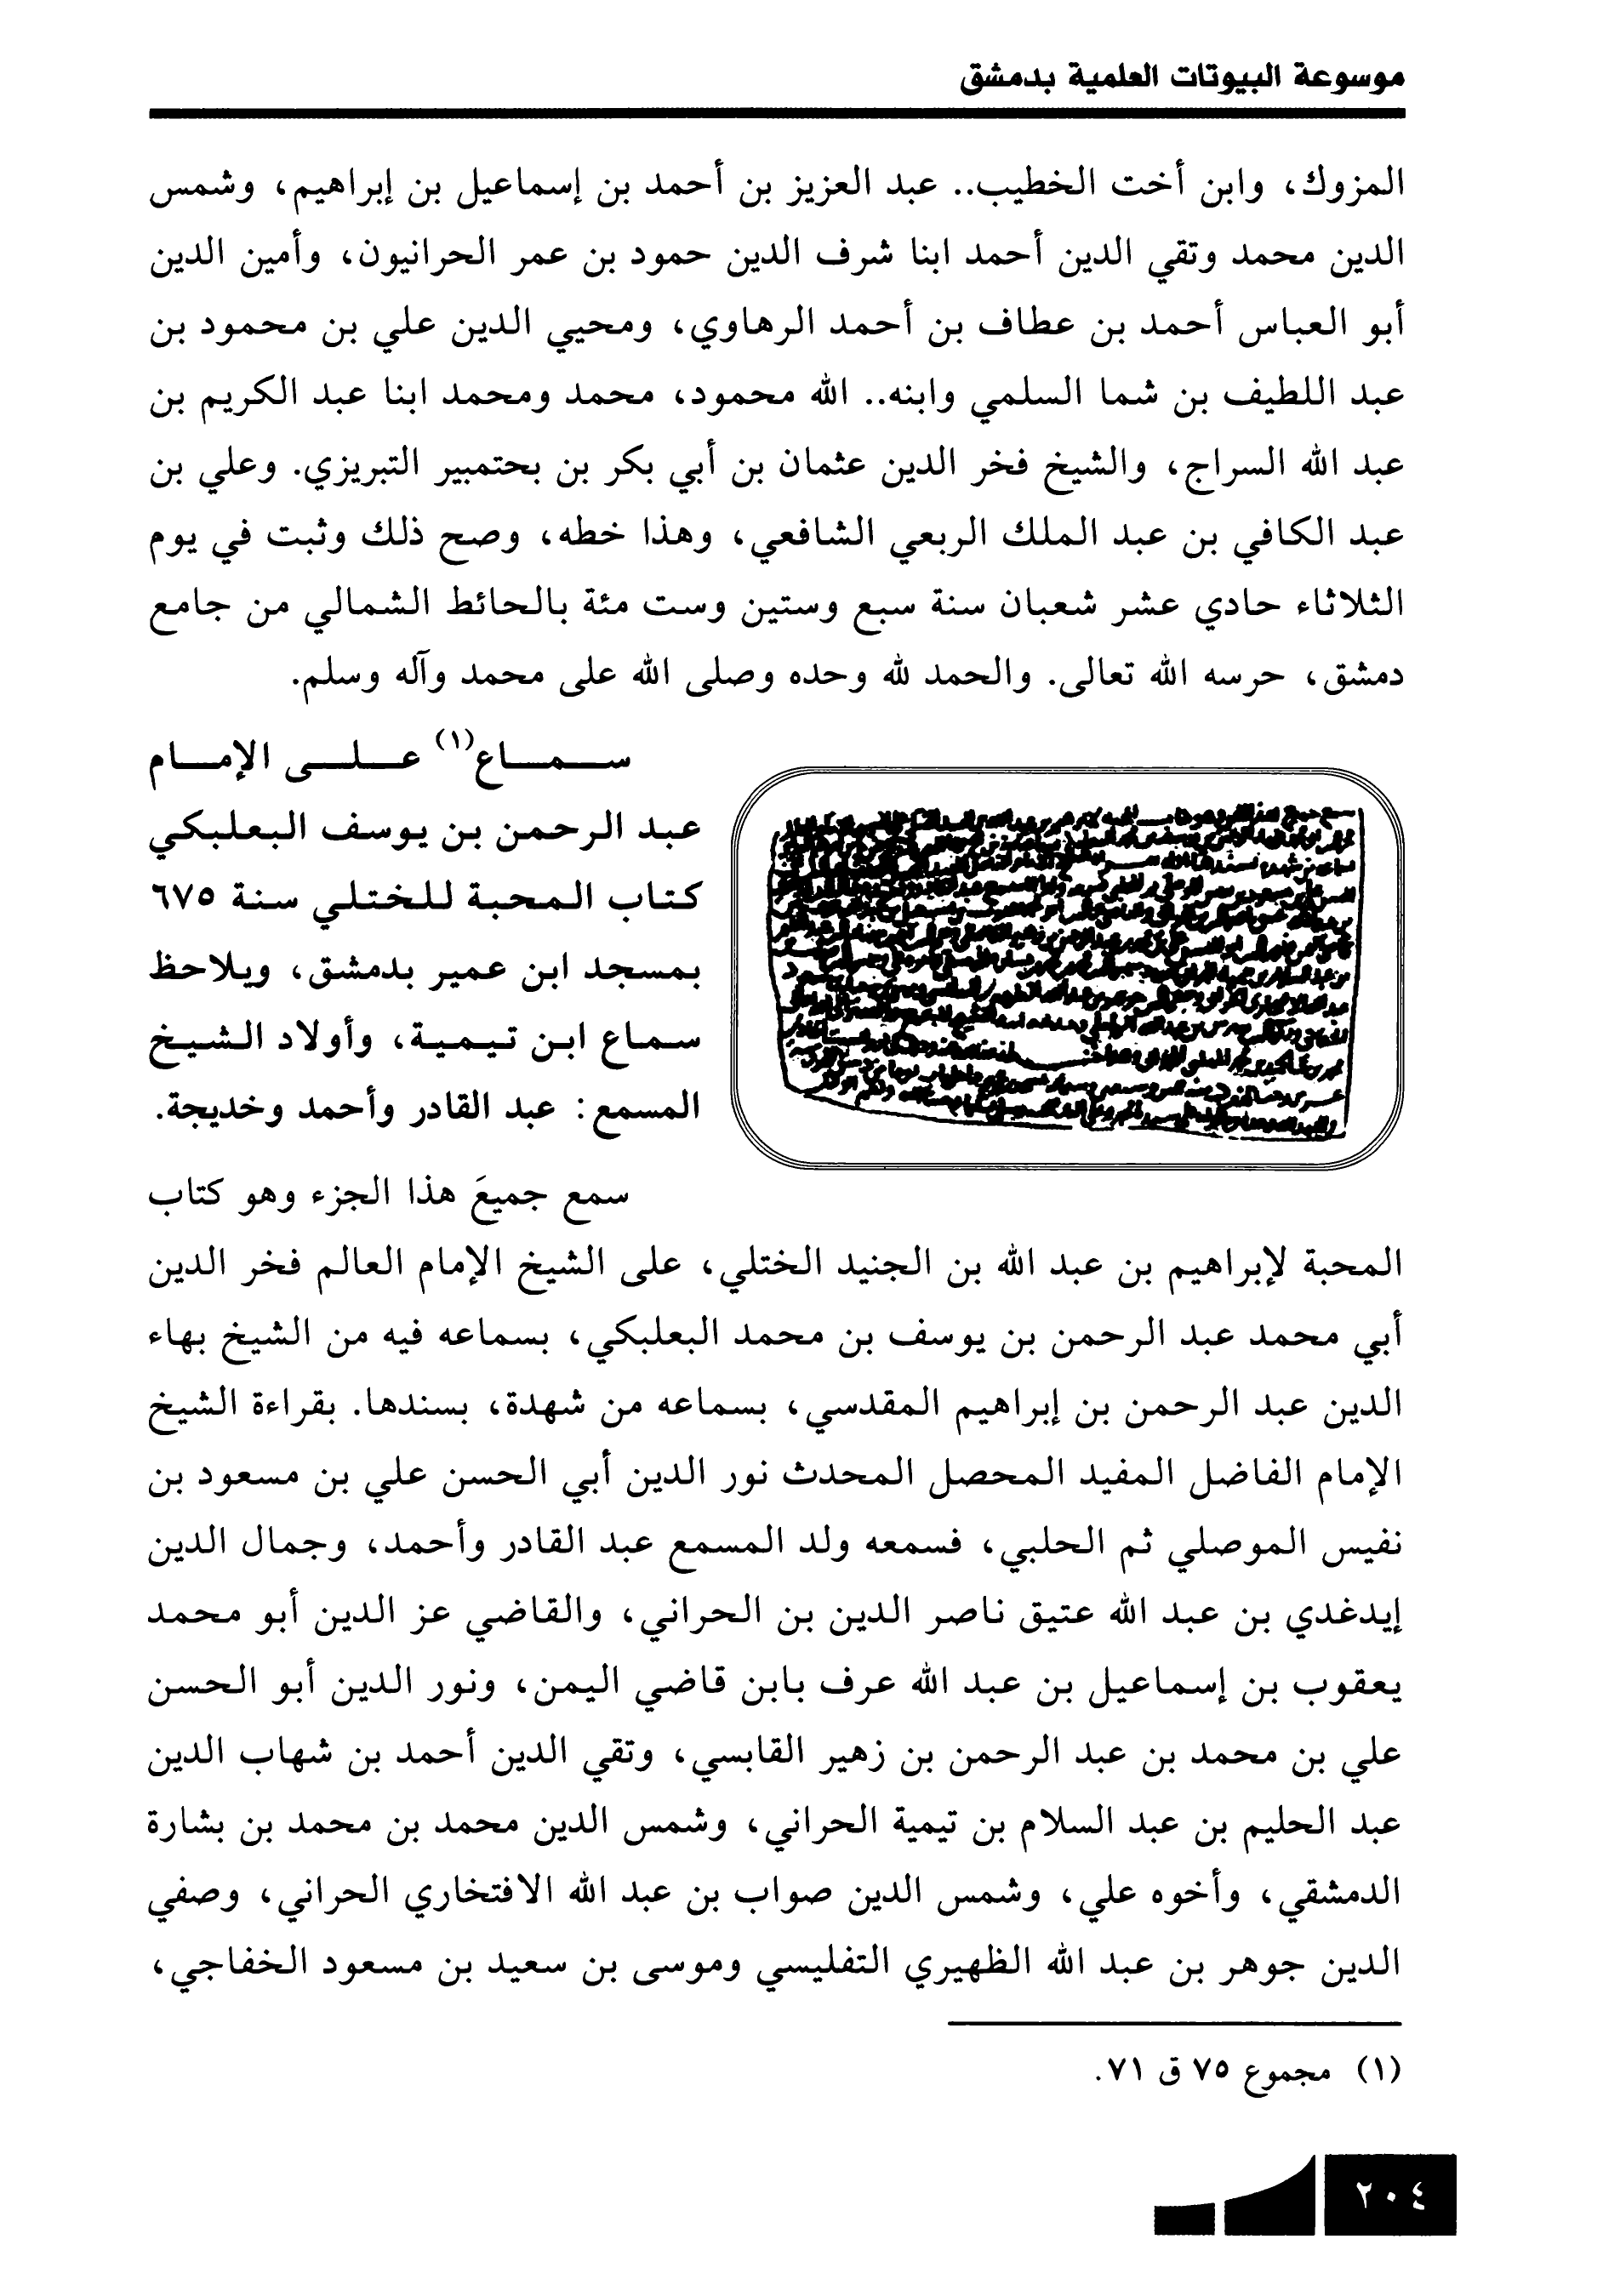 موسوعة البيوتات العلمية بدمشق
المزوك، وابن أخت الخطيب.. عبد العزيز بن أحمد بن إسماعيل بن إبراهيم، وشمس
الدين محمد وتقي الدين أحمد ابنا شرف الدين حمود بن عمر الحرانيون، وأمين الدين
أبو العباس أحمد بن عطاف بن أحمد الرهاوي، ومحيي الدين علي بن محمود بن
عبد اللطيف بن شما السلمي وابنه.. الله محمود، محمد ومحمد ابنا عبد الكريم بن
عبد الله السراج، والشيخ فخر الدين عثمان بن أبي بكر بن بحتمبير التبريزي. وعلي بن
عبد الكافي بن عبد الملك الربعي الشافعي، وهذا خطه، وصح ذلك وثبت في يوم
الثلاثاء حادي عشر شعبان سنة سبع وستين وست مئة بالحائط الشمالي من جامع
دمشق، حرسه الله تعالى. والحمد لله وحده وصلى الله على محمد وآله وسلم.
سـمـاع(١) عـلـى الإمـام
عبد الرحمن بن يوسف البعلبكي
كتاب المحبة للختلي سنة ٦٧٥
بمسجد ابن عمير بدمشق، ويلاحظ
سماع ابن تيمية، وأولاد الشيخ
المسمع: عبد القادر وأحمد وخديجة.
سمع جميعَ هذا الجزء وهو كتاب
المحبة لإبراهيم بن عبد الله بن الجنيد الختلي، على الشيخ الإمام العالم فخر الدين
أبي محمد عبد الرحمن بن يوسف بن محمد البعلبكي، بسماعه فيه من الشيخ بهاء
الدين عبد الرحمن بن إبراهيم المقدسي، بسماعه من شهدة، بسندها. بقراءة الشيخ
الإمام الفاضل المفيد المحصل المحدث نور الدين أبي الحسن علي بن مسعود بن
نفيس الموصلي ثم الحلبي، فسمعه ولد المسمع عبد القادر وأحمد، وجمال الدين
إيدغدي بن عبد الله عتيق ناصر الدين بن الحراني، والقاضي عز الدين أبو محمد
يعقوب بن إسماعيل بن عبد الله عرف بابن قاضي اليمن، ونور الدين أبو الحسن
علي بن محمد بن عبد الرحمن بن زهير القابسي، وتقي الدين أحمد بن شهاب الدين
عبد الحليم بن عبد السلام بن تيمية الحراني، وشمس الدين محمد بن محمد بن بشارة
الدمشقي، وأخوه علي، وشمس الدين صواب بن عبد الله الافتخاري الحراني، وصفي
الدين جوهر بن عبد الله الظهيري التفليسي وموسى بن سعيد بن مسعود الخفاجي،
(١) مجموع ٧٥ ق ٧١.
٢٠٤